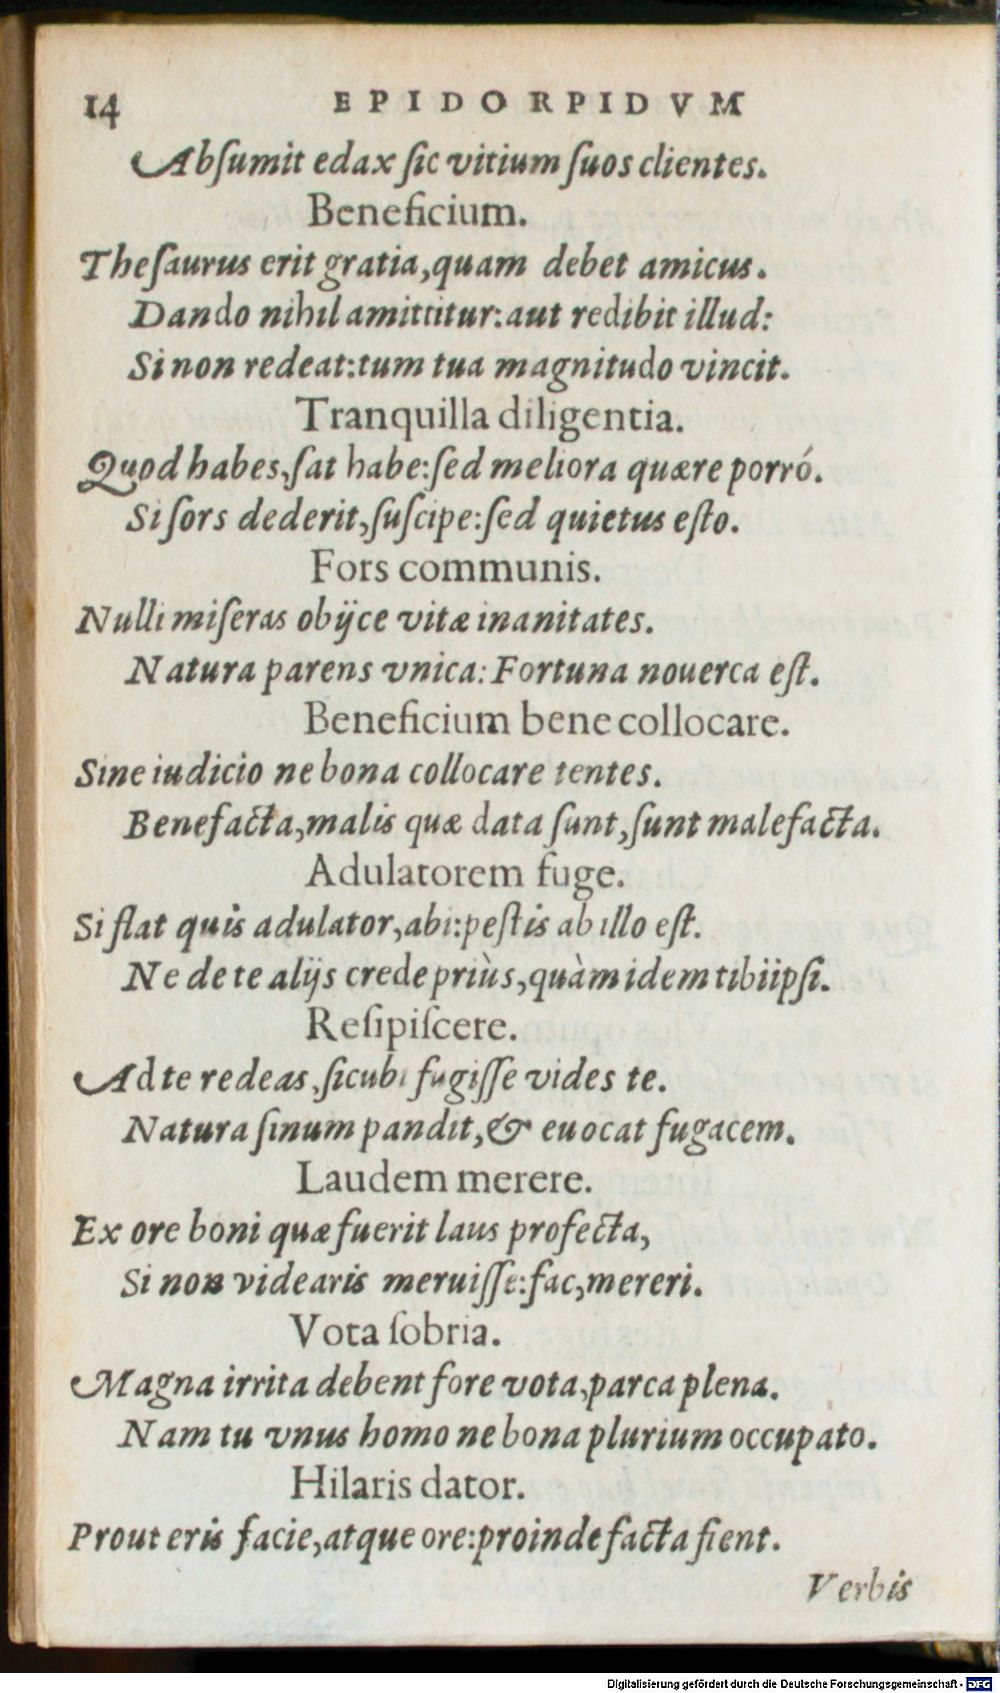 14 EPIDORPIDVM
Abſumit edax ſic vitium ſuos clientes.
Beneficium.
Theſaurus erit gratia, quam debet amicus.
Dando nihil amittitur: aut redibit illud:
Si non redeat: tum tua magnitudo vincit.
Tranquilla diligentia.
Quod habes, ſat habe: ſed meliora quære porró.
Si ſors dederit, ſuſcipe: ſed quietus eſto.
Fors communis.
Nulli miſeras obijce vitæ inanitates.
Natura parens vnica: Fortuna nouerca eſt.
Beneficium bene collocare.
Sine iudicio ne bona collocare tentes.
Benefacta, malis quæ data ſunt, ſunt malefacta.
Adulatorem fuge.
Si flat quis adulator, abi: peſtis ab illo eſt.
Ne de te alijs crede priùs, quàm idem tibi ipſi.
Reſipiſcere.
Ad te redeas, ſicubi fugiſſe vides te.
Natura ſinum pandit, & euocat fugacem.
Laudem merere.
Ex ore boni quæ fuerit laus profecta,
Si non videaris meruiſſe: fac, mereri.
Vota ſobria.
Magna irrita debent fore vota, parca plena.
Nam tu vnus homo ne bona plurium occupato.
Hilaris dator.
Prout eris facie, atque ore: proinde facta fient.
Verbis
Digitalisierung gefördert durch die Deutsche Forschungsgemeinschaft - DFG